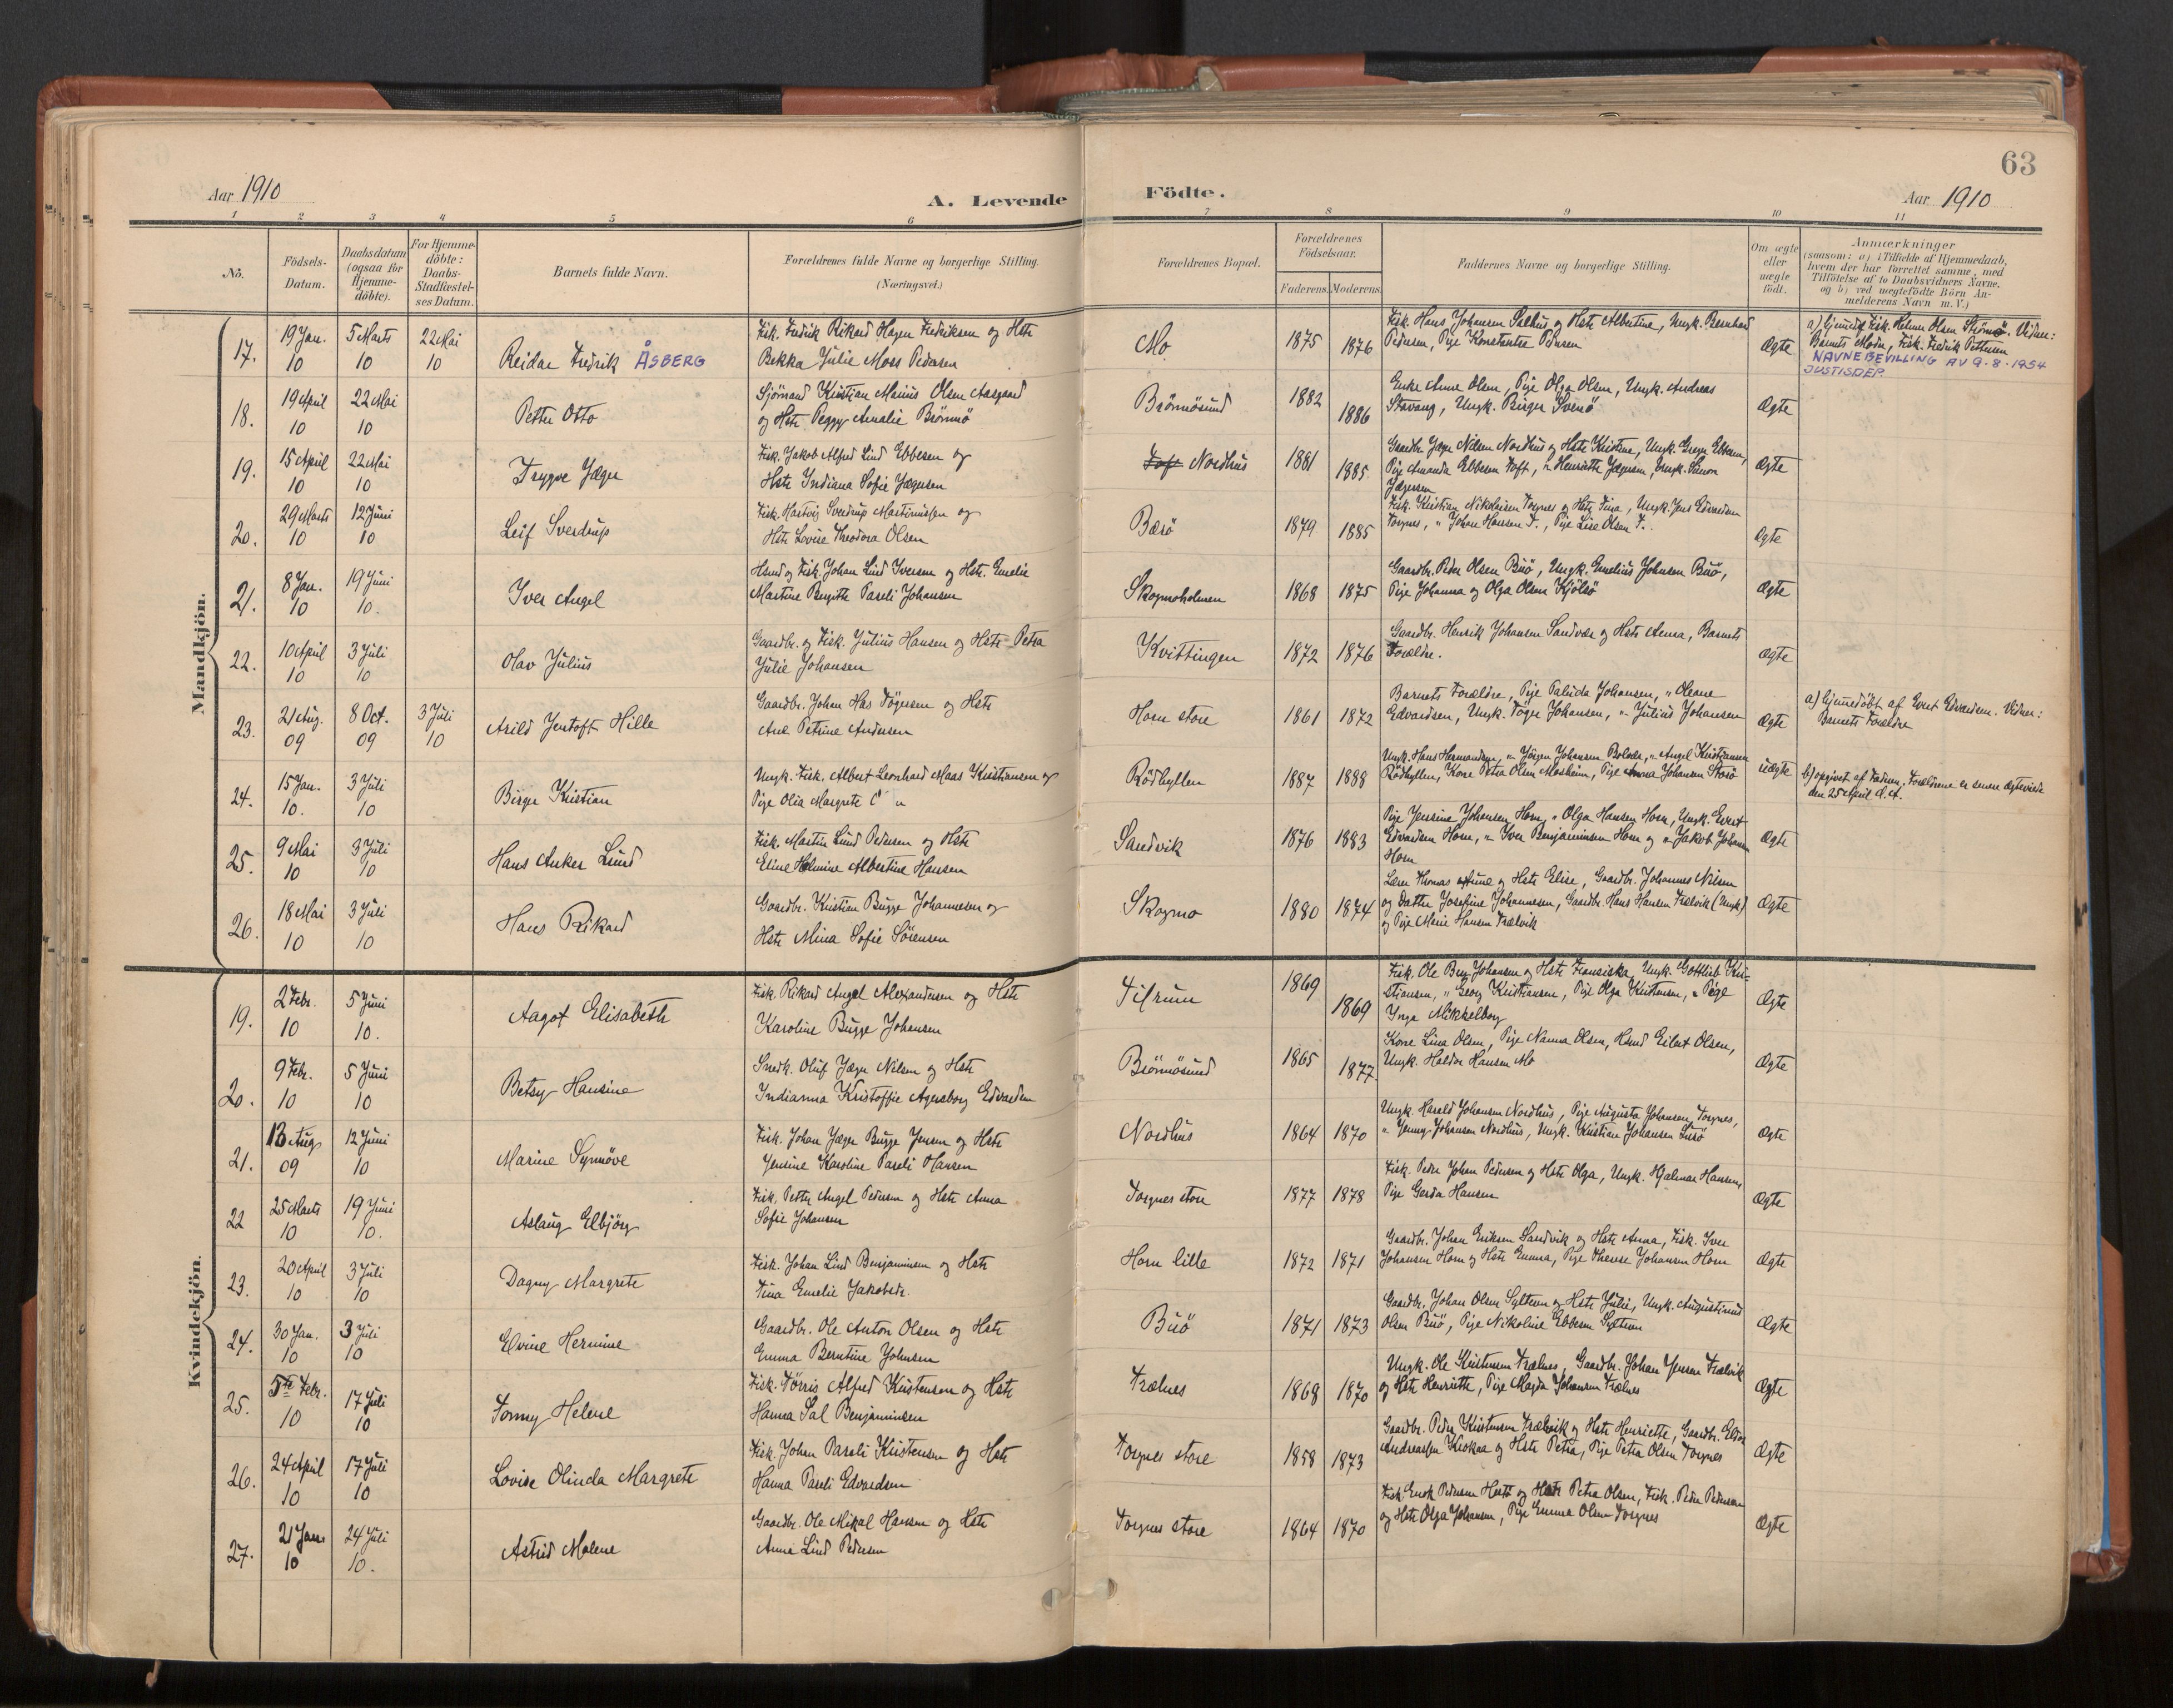 63
Aar 1910
A. Levende
Födte.
Aar 1910
1 2 3 4 5 6 7 8 9 10 11
Nö.
Födsels-
Datum.
Daabsdatum
(ogsaa for
Hjemme-
döbte).
For Hjemme-
döbte:
Daabs-
Stadfæstel-
ses Datum.
Barnets fulde Navn.
Forældrenes fulde Navne og borgerlige Stilling.
(Næringsvei.)
Forældrenes Bopæl.
Forældrenes
Födselsaar.
Faderens. Moderens.
Faddernes Navne og borgerlige Stilling.
Om ægte
eller
uægte
födt.
Anmærkninger
(saasom: a) i Tilfælde af Hjemmedaab,
hvem der har forrettet samme, med
Tilföielse af to Daabsvidners Navne,
og b) ved uægtefödte Börn An-
melderens Navn m. V.)
Mandkjön.
17.
19 Jan.
10
5 Marts
10
22 Mai
10
Reidar Fredrik ÅSBERG
Fisk. Fredrik Rikard Hagen Fredriksen og Hstr
Bekka Julie Moss Pedersen
Mo
1875
1876
Fisk. Hans Johansen Salhus og Hstr Albertine, Ungk. Bernhard
Pedersen, Pige Konstantse Pedersen
Ægte
a) hjemmed. Fisk. Helmer Olsen Strömö. Vidner:
Barnets Moder, Fisk. Fredrik Pettersen
NAVNEBEVILLING AV 9.8.1954
JUSTISDEP.
18.
19 April
10
22 Mai
10
Petter Otto
Sjömand Kristian Marius Olsen Aasgaard
og Hstr Peggy Amalie Brönnö
Brönnösund
1882
1886
Enke Anne Olsen, Pige Olga Olsen, Ungk. Andreas
Stavang, Ungk. Birger Svenö
Ægte
19.
15 April
10
22 Mai
10
Trygve Jæger
Fisk. Jakob Alfred Lind Ebbesen og
Hstr Indiana Sofie Jægersen
Toft Nordhus
1881
1885
Gaardbr. Jæger Nilsen Nordhus og Hstr Kristine, Ungk. Ebbesen,
Pige Amanda Ebbesen Toft, " Henriette Jægersen, Ungk. Simon
Jægersen
Ægte
20.
29 Marts
10
12 Juni
10
Leif Sverdrup
Fisk. Hartvig Sverdrup Martinussen og
Hstr Lovise Theodora Olsen
Bærö
1879
1885
Fisk. Kristian Nikolaisen Torgnes og Hstr Tina, Ungk. Jens Edvardsen
Torgnes, " Johan Hansen T., Pige Lise Olsen T.
Ægte
21.
8 Jan.
10
19 Juni
10.
Iver Angel
Hsmd og Fisk. Johan Lind Iversen og Hstr. Emelie
Martine Bergitte Pareli Johansen
Skogmoholmen
1868
1875
Gaardbr. Peder Olsen Buö, Ungk. Emelius Johnsen Buö,
Pige Johanna og Olga Olsen Kjölsö
Ægte
22.
10 April
10
3 Juli
10
Olav Julius
Gaardbr. og Fisk. Julius Hansen og Hstr Petra
Julie Johansen
Kvittingen
1872
1876
Gaardbr. Henrik Johansen Sandvær og Hstr Anna, Barnets
Forældre.
Ægte
23.
21 Aug.
09
8 Oct.
09
3 Juli
10
Arild Jentoft Hille
Gaardbr. Johan Has Tögersen og Hstr
Ane Petrine Andersen
Horn store
1861
1872
Barnets Forældre, Pige Paluda Johansen, " Oleane
Edvardsen, Ungk. Töger Johansen, " Julius Johansen
Ægte
a) hjemmedöbt af Evert Edvardsen. Vidner:
Barnets Forældre
24.
15 Jan.
10.
3 Juli
10
Birger Kristian
Ungk. Fisk. Albert Leonhard Maas Kristiansen og
Pige Olia Margrete
Rödhyllen
1887
1888
Ungk. Hans Hermandsen, " Jörgen Johansen, " Angel Kristiansen
Rödhyllen, Kone Petra Olsen Mosheim, Pige Anna Johansen Storö
uægte
b) opgivet af Faderen. Forældrene er senere ægteviede
den 25 April d.A.
25.
9 Mai
10
3 Juli
10
Hans Anker Lund
Fisk. Martin Lund Pedersen og Hstr
Eline Helmine Albertine Hansen
Sandvik
1876
1883
Pige Jensine Johansen Horn, " Olga Hansen Horn, Ungk. Evert
Edvardsen Horn, " Iver Benjaminsen Horn og " Jakob Johansen
Horn
Ægte
26.
18 Mai
10
3 Juli
10
Hans Rikard
Gaardbr. Kristian Bugge Johannesen og
Hstr Mina Sofie Sörensen
Skogmo
1880
1874
Lærer Thomas Aune og Hstr Elise, Gaardbr. Johannes Nilsen
og Datter Josefine Johannesen, Gaardbr. Hans Hansen Trælvik (Ungk.)
og Pige Marie Hansen Trælvik
Ægte
Kvindekjön.
19.
2 Febr.
10
5 Juni
10.
Aagot Elisabeth
Fisk. Rikard Angel Alexandersen og Hstr
Karoline Bugge Johansen
Tilrum
1869
1869
Fisk. Ole Johansen og Hstr Fransiska, Ungk. Gottlieb Kri-
stiansen, " Georg Kristiansen, Pige Olga Kristensen, " Pige
Inga Mikkelborg
Ægte
20.
9 Febr.
10
5 Juni
10
Betsy Hansine
Snedk. Oluf Jæger Nilsen og Hstr
Indianna Kristoffie Agersborg Edvardsen
Brönnösund
1865
1877
Kone Lina Olsen, Pige Nanna Olsen, Hsmd Eilert Olsen,
Ungk. Haldor Hansen Mo
Ægte
21.
13 Aug
09
12 Juni
10
Marine Synnöve
Fisk. Johan Jæger Bugge Jensen og Hstr
Jensine Karoline Pareli Hansen
Nordhus
1864
1870
Ungk. Harald Johansen Nordhus, Pige Augusta Johansen, Torgnes,
" Jenny Johansen Nordhus, Ungk. Kristian Johansen
Ægte
22
25 Marts
10
19 Juni
10.
Aslaug Elbjörg
Fisk. Petter Angel Pedersen og Hstr Anna
Sofie Johansen
Torgnes store
1877
1878
Fisk. Peder Johan Pedersen og Hstr Olga, Ungk. Hjalmar Hansen,
Pige Gerda Hansen
Ægte
23.
20 April
10
3 Juli
10
Dagny Margrete
Fisk. Johan Lind Benjaminsen og Hstr
Tina Emelie Jakobsdr.
Horn lille
1872
1871
Gaardbr. Johan Eriksen Sandvik og Hstr Anna, Fisk. Iver
Johansen Horn og Hstr Emma, Pige Therese Johansen Horn
Ægte
24.
30 Jan.
10
3 Juli
10
Elvine Hermine
Gaardbr. Ole Anton Olsen og Hstr
Emma Berntine Johnsen
Buö
1871
1873
Gaardbr. Johan Olsen Sylteren og Hstr Julie, Ungk. Augustinus
Olsen Buö, Pige Nikoline Ebbesen
Ægte
25.
5te Febr.
10
17 Juli
10
Tommy Helene
Fisk. Törris Alfred Kristensen og Hstr
Hanna Sal Benjaminsen
Trælnes
1868
1870
Ungk. Ole Kristensen Trælnes, Gaardbr. Johan Jensen Trælvik
og Hstr Henriette, Pige Magda Johansen Trælnes
Ægte
26.
24 April
10
17 Juli
10
Lovise Olinda Margrete
Fisk. Johan Pareli Kristensen og Hstr
Hanna Pareli Edvardsen
Torgnes store
1858
1873
Gaardbr. Peder Kristensen Trælvik og Hstr Henriette, Gaardbr.
Andreassen Krokaa og Hstr Petra, Pige Petra Olsen Torgnes
Ægte
27.
21 Jan.
10
24 Juli
10.
Astrid Malene
Gaardbr. Ole Mikal Hansen og Hstr
Anna Lind Pedersen
Torgnes store
1864
1870
Fisk. Enok Pedersen og Hstr Petra Olsen, Fisk. Peder Pedersen
og Hstr Olga Johansen, Pige Emma Olsen Torgnes
Ægte